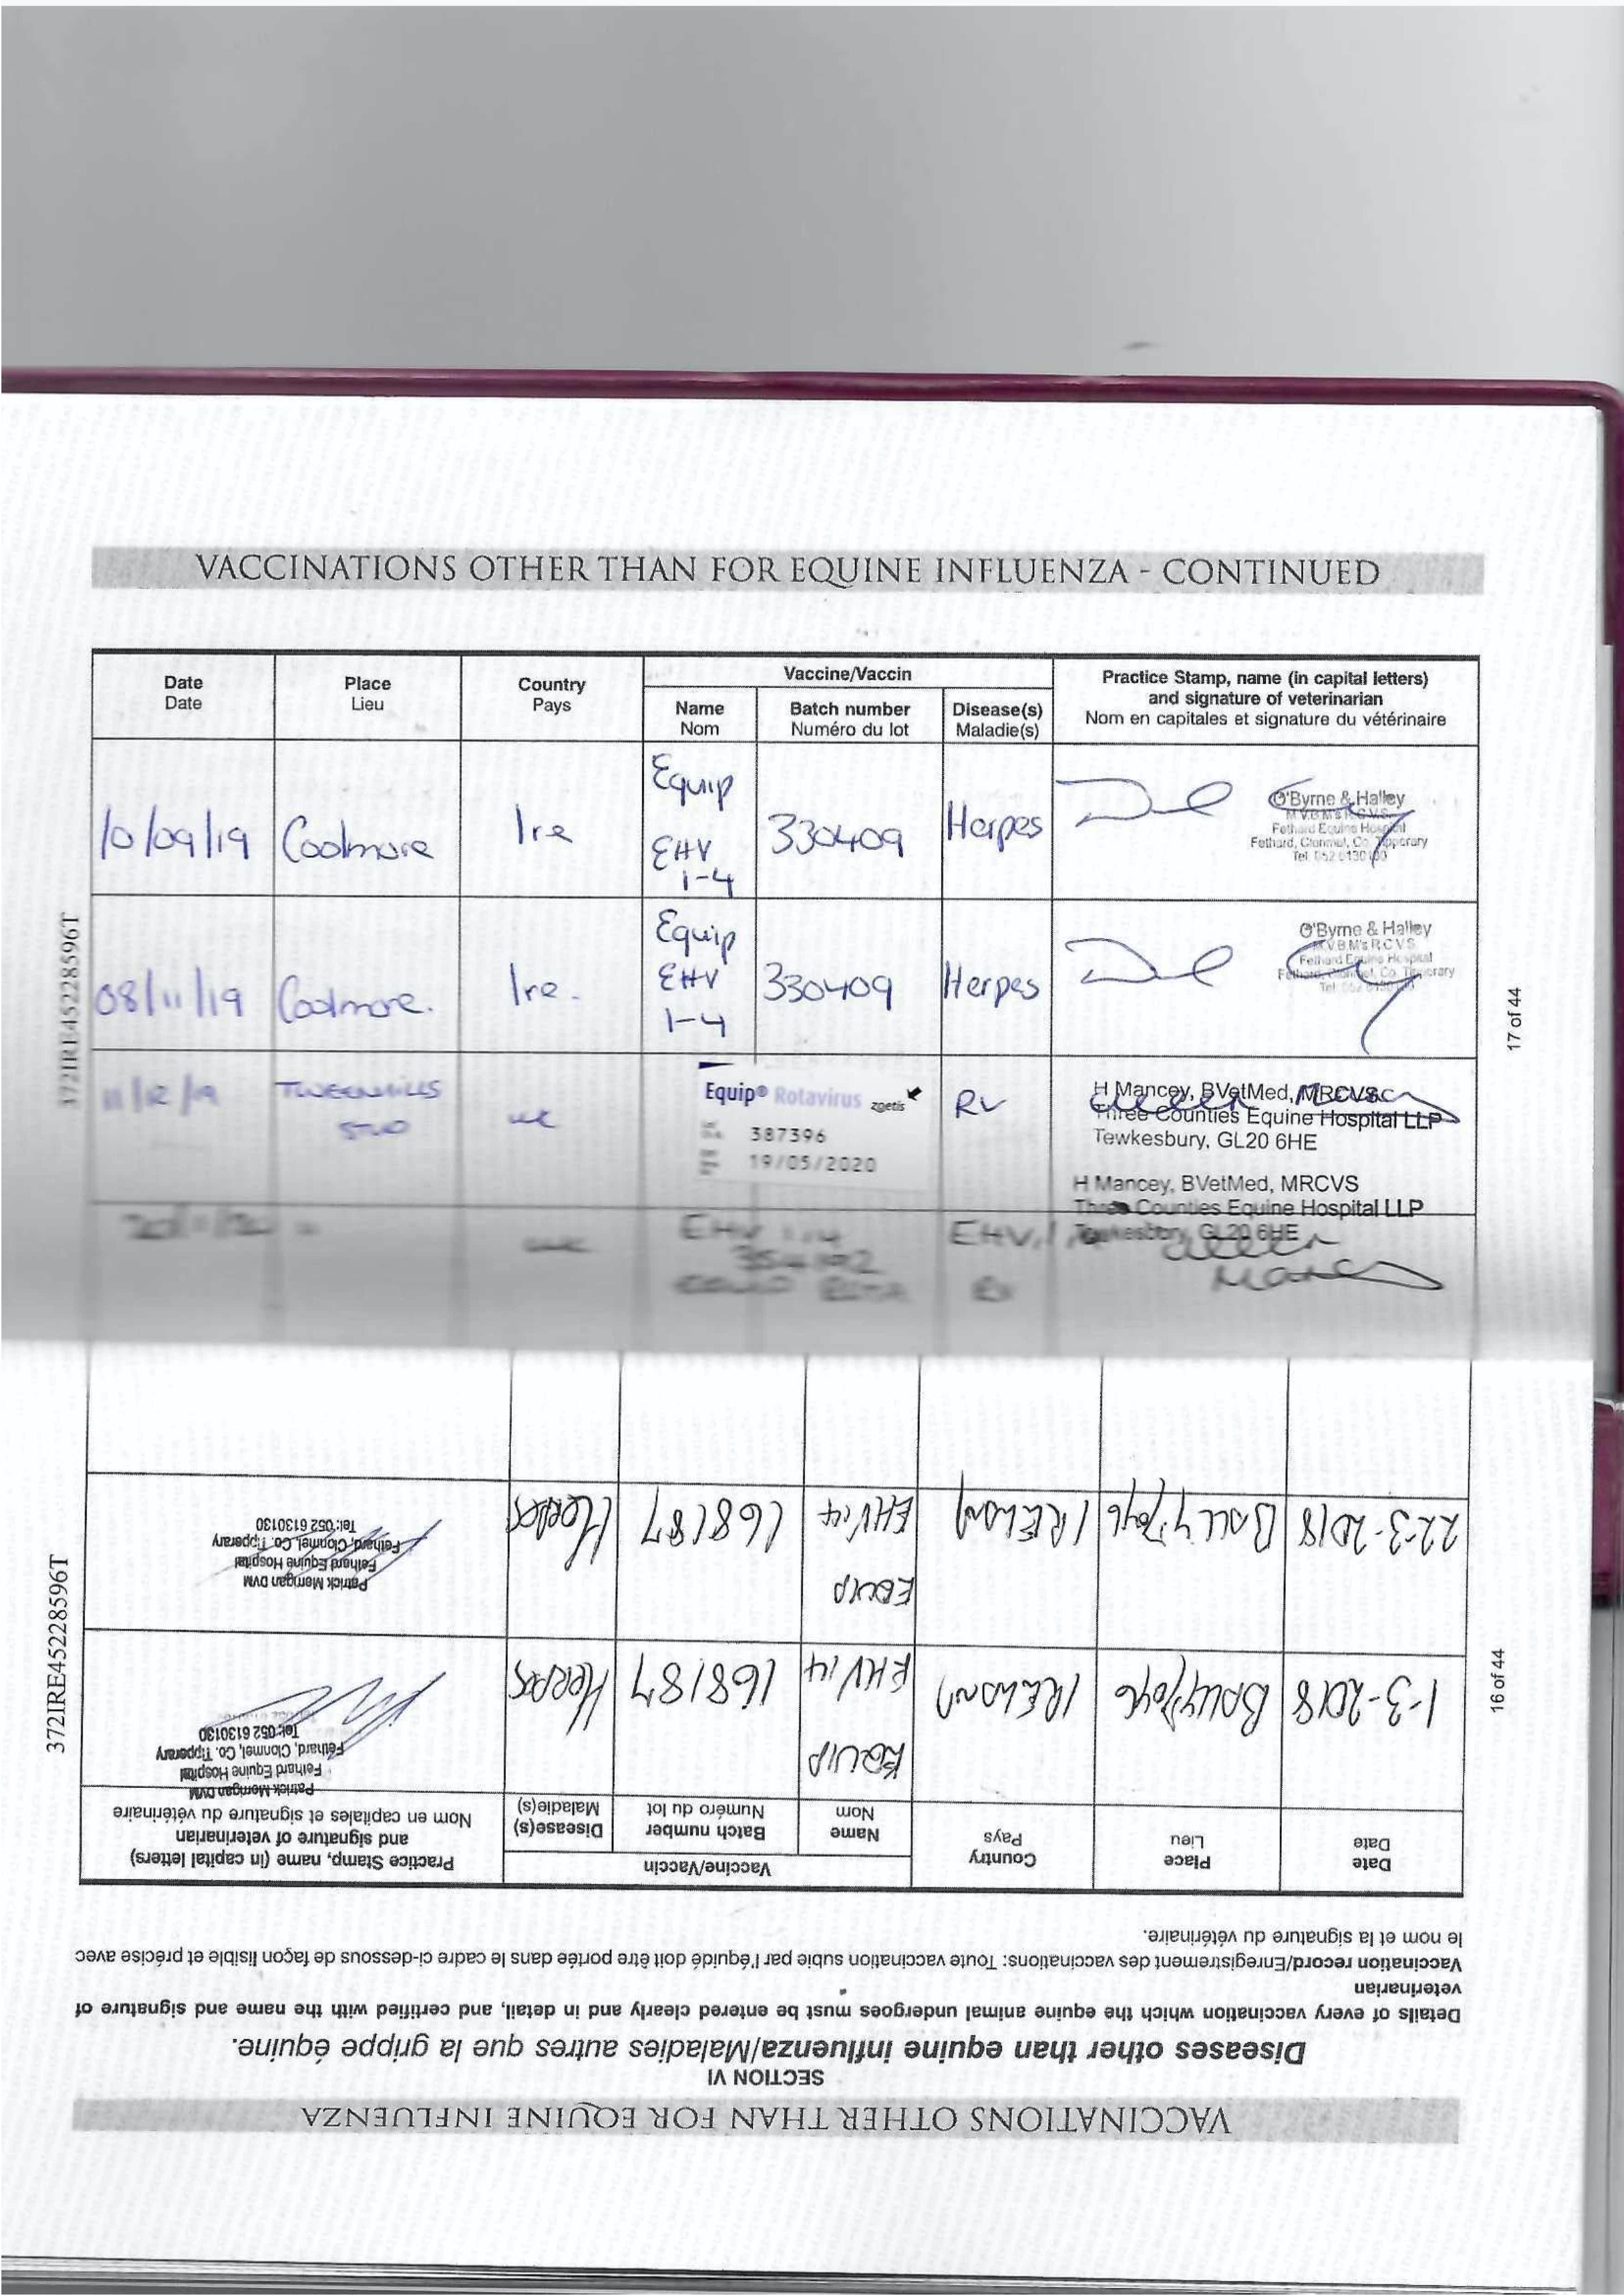 VACCINATIONS OTHER THAN FOR EQUINE INFLUENZA - CONTINUED
Date
Date
Place
Lieu
Country
Pays
Vaccine/Vaccin
Name
Nom
Batch number
Numéro du lot
Disease(s)
Maladie(s)
Practice Stamp, name (in capital letters)
and signature of veterinarian
Nom en capitales et signature du vétérinaire
10/09/19
Coolmore
Ire
Equip
EHV
1-4
330409
Herpes
O'Byrne & Halley
M.V.B M's R.C.V.S.
Fethard Equine Hospital
Fethard, Clonmel, Co. Tipperary
Tel: 052 6130130
08/11/19
Coolmore.
Ire.
Equip
EHV
1-4
330409
Herpes
O'Byrne & Halley
M.V.B M's R.C.V.S
Fethard Equine Hospital
Fethard, Clonmel, Co. Tipperary
11/12/19
STUD
UK
Equip® Rotavirus zoetis
387396
19/05/2020
RV
H Mancey, BVetMed, MRCVS
Three Counties Equine Hospital LLP
Tewkesbury, GL20 6HE
H Mancey, BVetMed, MRCVS
Three Counties Equine Hospital LLP
Tewkesbury, GL20 6HE
UK
EHV 1,4
EHV
Mancey
372IRE45228596T
17 of 44
VACCINATIONS OTHER THAN FOR EQUINE INFLUENZA
SECTION VI
Diseases other than equine influenza/Maladies autres que la grippe équine.
Details of every vaccination which the equine animal undergoes must be entered clearly and in detail, and certified with the name and signature of
veterinarian
Vaccination record/Enregistrement des vaccinations: Toute vaccination subie par l'équidé doit être portée dans le cadre ci-dessous de façon lisible et précise avec
le nom et la signature du vétérinaire.
Date
Date
Place
Lieu
Country
Pays
Vaccine/Vaccin
Name
Nom
Batch number
Numéro du lot
Disease(s)
Maladie(s)
Practice Stamp, name (in capital letters)
and signature of veterinarian
Nom en capitales et signature du vétérinaire
1-3-2018
IRELAND
EQUIP
EHV 14
168187
Herpes
Patrick Merrigan DVM
Fethard Equine Hospital
Fethard, Clonmel, Co. Tipperary
Tel: 052 6130130
22-3-2018
IRELAND
EQUIP
EHV 14
168187
Herpes
Patrick Merrigan DVM
Fethard Equine Hospital
Fethard, Clonmel, Co. Tipperary
Tel: 052 6130130
16 of 44
372IRE45228596T